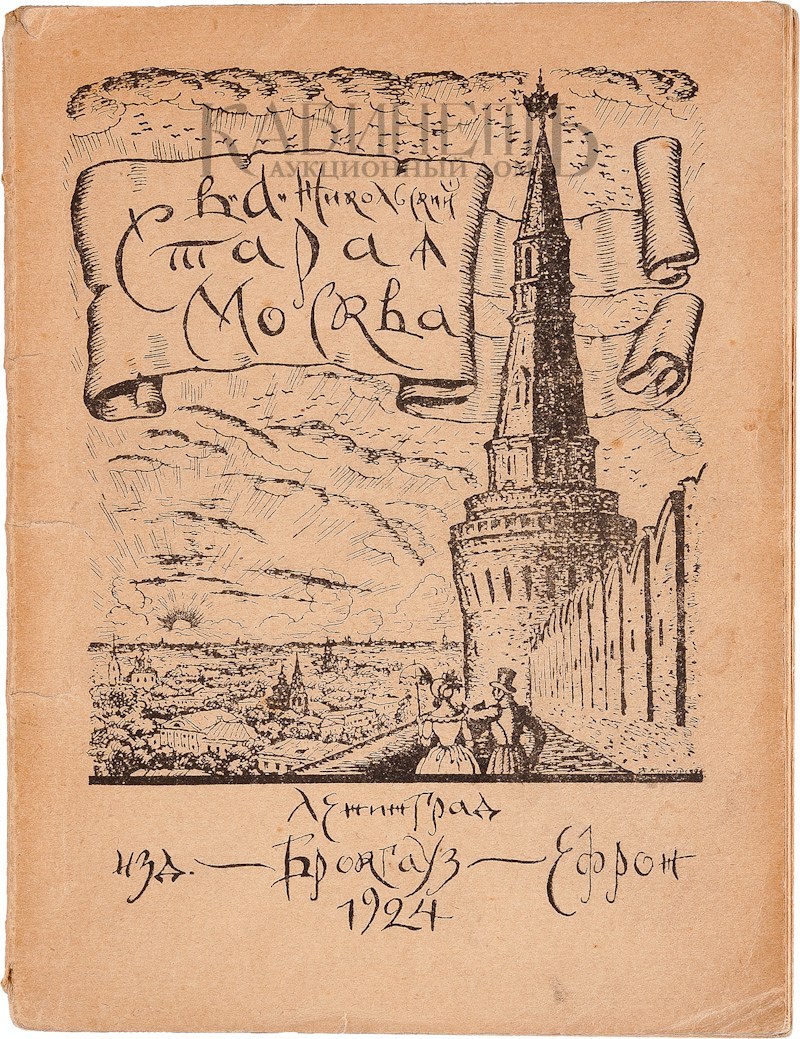 КАБИНЕТЪ
АУКЦИОННЫЙ ДОМ
В. А. Никольский
Старая
Москва
Ленинград
изд. — Брокгауз — Ефрон
1924